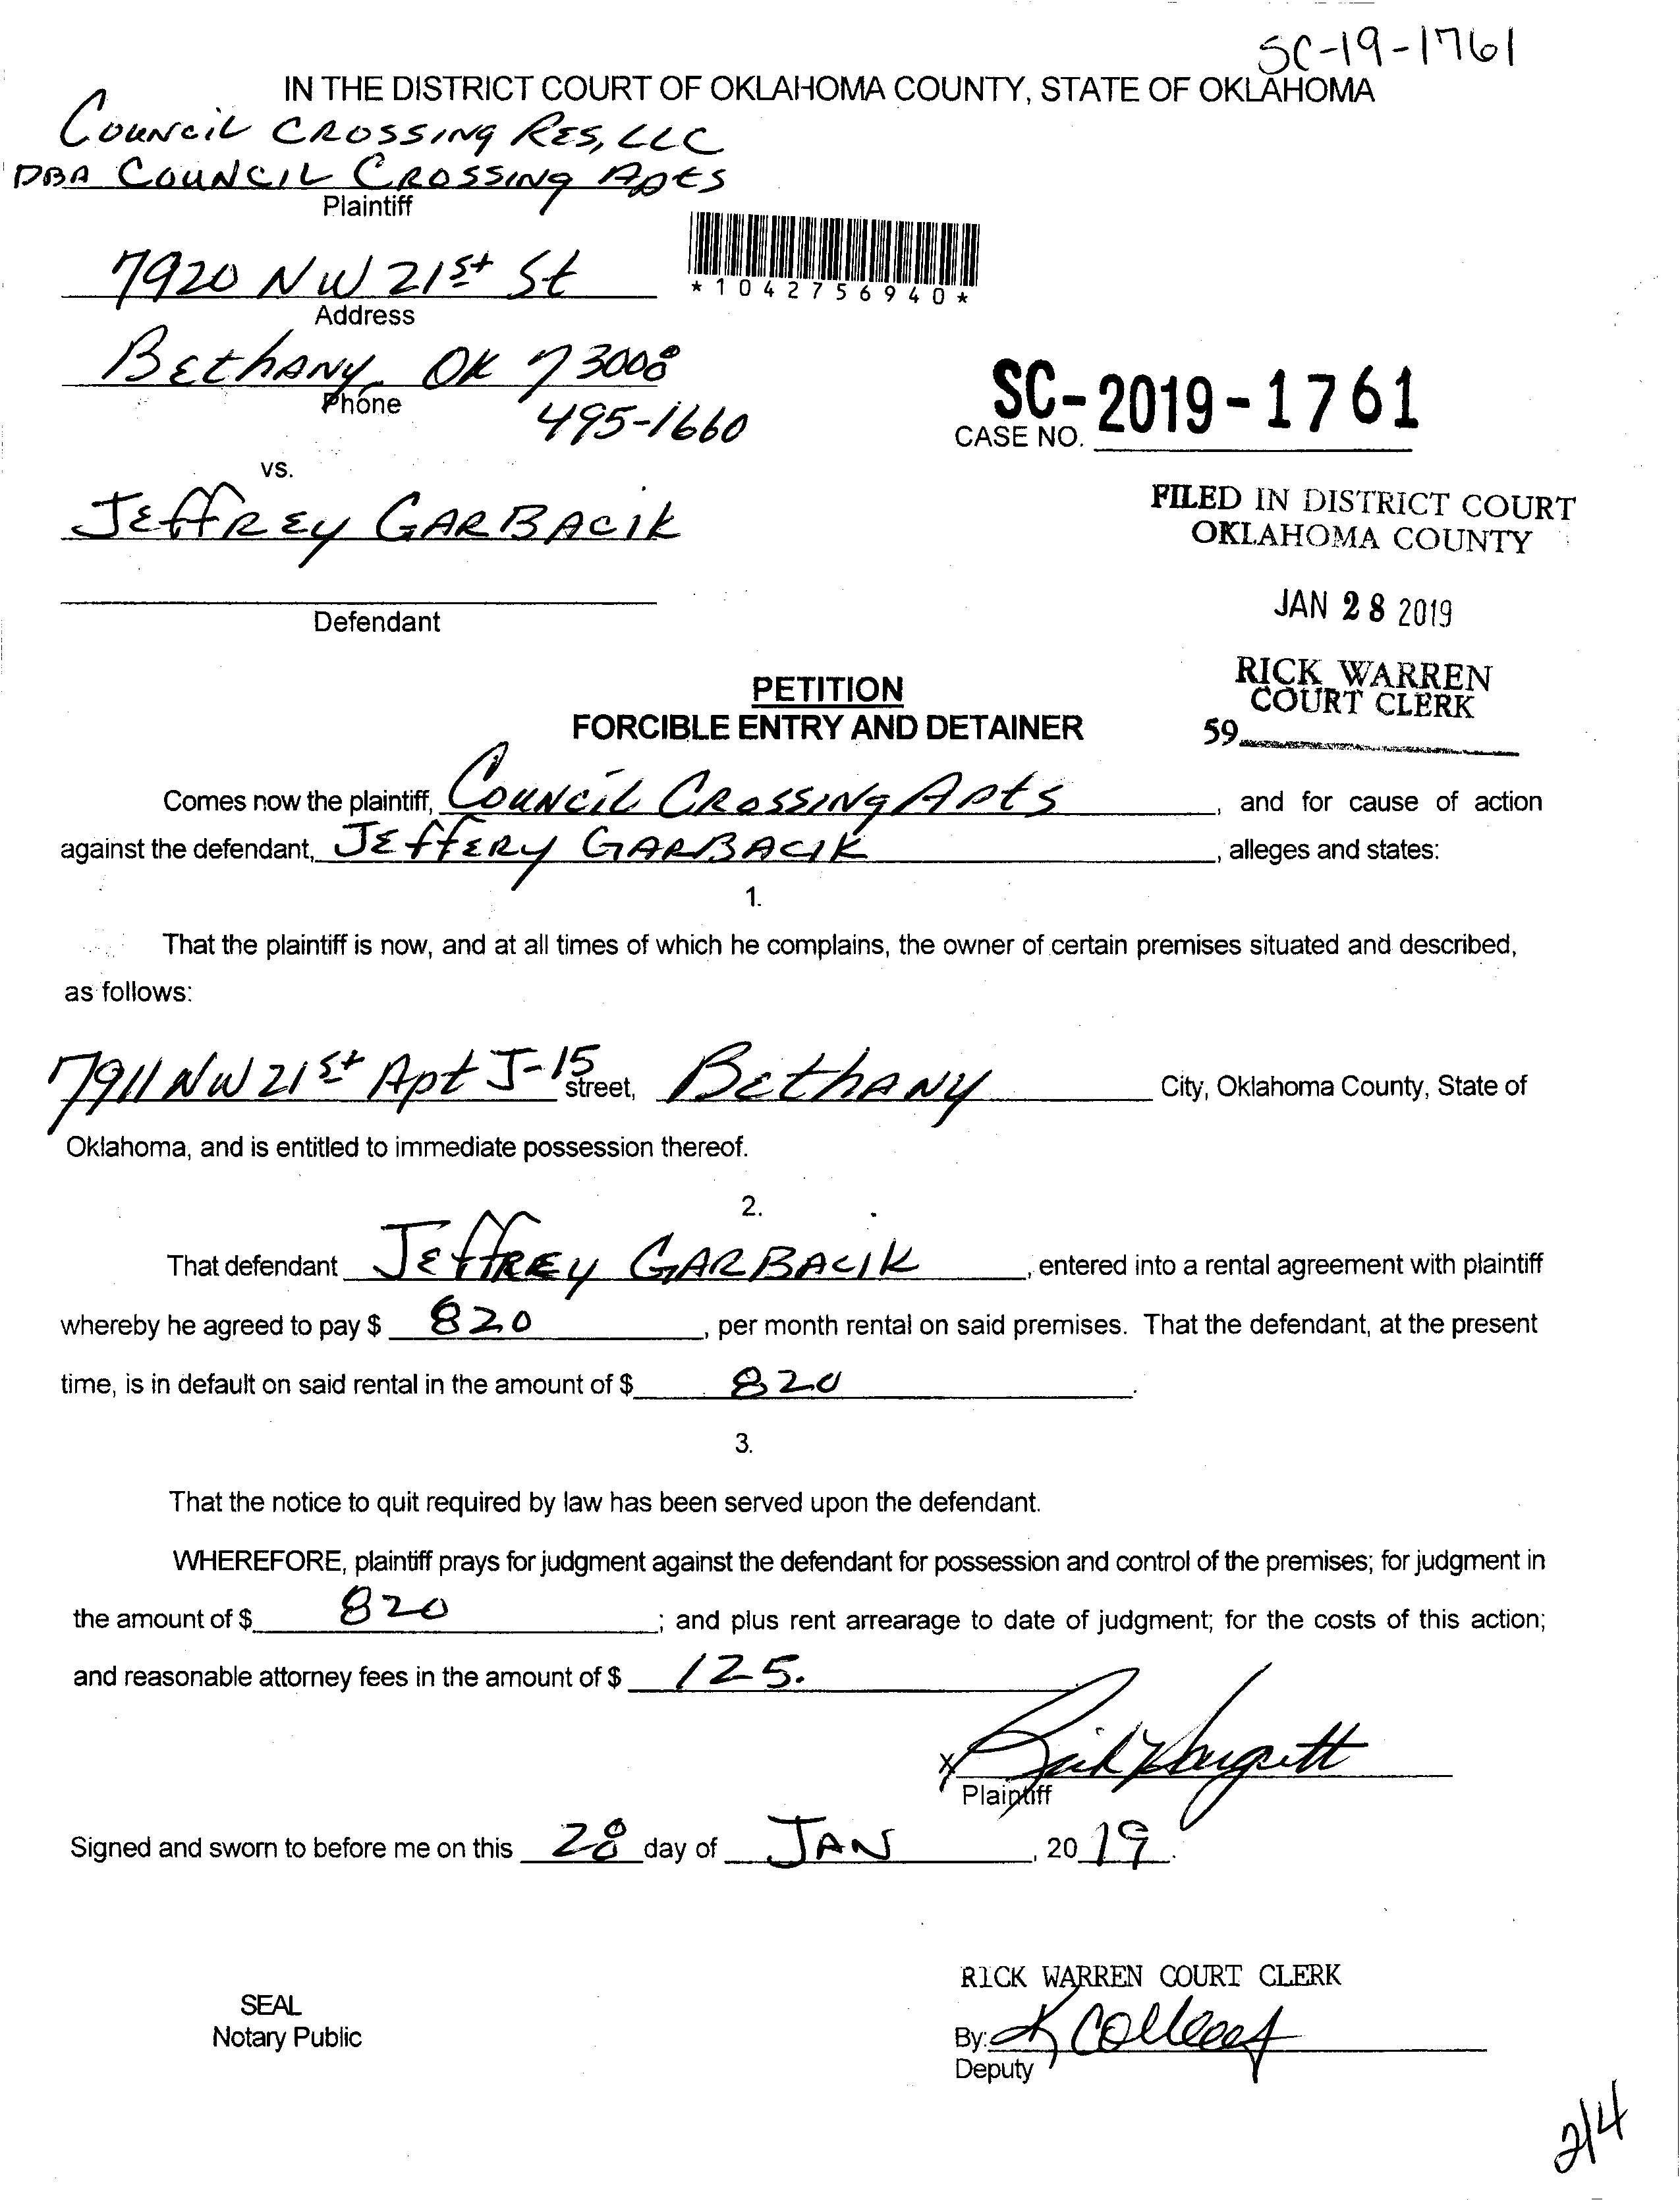 SC-19-1761
IN THE DISTRICT COURT OF OKLAHOMA COUNTY, STATE OF OKLAHOMA
COUNCIL CROSSING RES, LLC
DBA COUNCIL CROSSING APtS
Plaintiff
7920 NW 21st St
Address
*1042756940*
BEthANY OK 73008
Phone
495-1660
SC-2019-1761
CASE NO.
vs.
JEffREy GARBACIK
FILED IN DISTRICT COURT
OKLAHOMA COUNTY
Defendant
JAN 28 2019
RICK WARREN
COURT CLERK
59
PETITION
FORCIBLE ENTRY AND DETAINER
Comes now the plaintiff, COUNCIL CROSSING APtS, and for cause of action
against the defendant, JEffERy GARBACIK, alleges and states:
1.
That the plaintiff is now, and at all times of which he complains, the owner of certain premises situated and described,
as follows:
7911 NW 21st Apt J-15 street, BEthANY City, Oklahoma County, State of
Oklahoma, and is entitled to immediate possession thereof.
2.
That defendant JEffREy GARBACIK, entered into a rental agreement with plaintiff
whereby he agreed to pay $ 820, per month rental on said premises. That the defendant, at the present
time, is in default on said rental in the amount of $ 820.
3.
That the notice to quit required by law has been served upon the defendant.
WHEREFORE, plaintiff prays for judgment against the defendant for possession and control of the premises; for judgment in
the amount of $ 820; and plus rent arrearage to date of judgment; for the costs of this action;
and reasonable attorney fees in the amount of $ 125.
X
Plaintiff
Signed and sworn to before me on this 28 day of JAN, 2019.
RICK WARREN COURT CLERK
SEAL
Notary Public
By:
Deputy
2/4